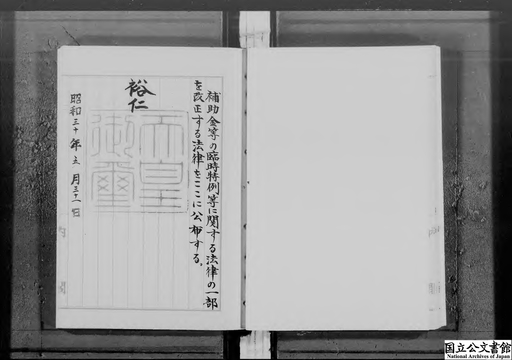 補助金等の臨時特例等に関する法律の一部
を改正する法律をここに公布する。
裕仁
天皇
御璽
昭和三十年五月三十一日
国立公文書館
National Archives of Japan